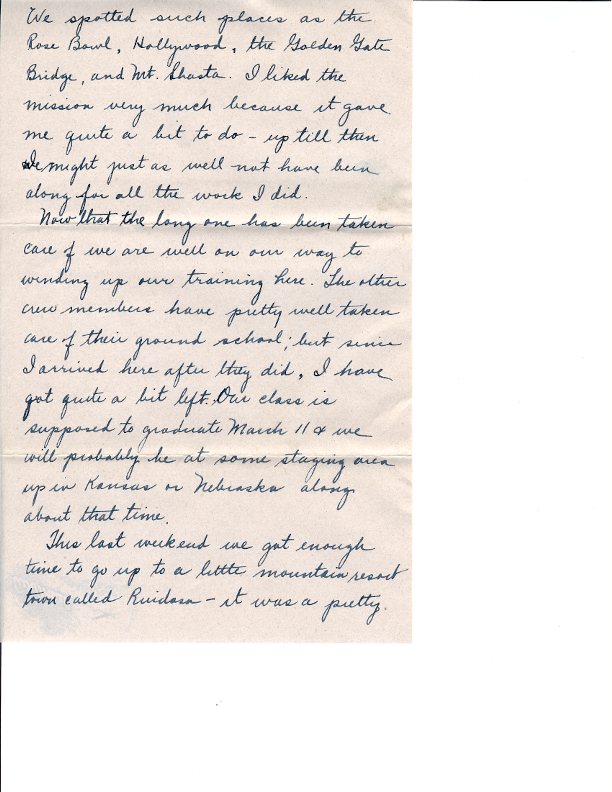 We spotted such places as the
Rose Bowl, Hollywood, the Golden Gate
Bridge, and Mt. Shasta. I liked the
mission very much because it gave
me quite a bit to do - up till then
I might just as well not have been
along for all the work I did.
Now that the long one has been taken
care of we are well on our way to
winding up our training here. The other
crew members have pretty well taken
care of their ground school; but since
I arrived here after they did, I have
got quite a bit left. Our class is
supposed to graduate March 11 & we
will probably be at some staging area
up in Kansas or Nebraska along
about that time.
This last weekend we got enough
time to go up to a little mountain resort
town called Ruidosa - it was a pretty